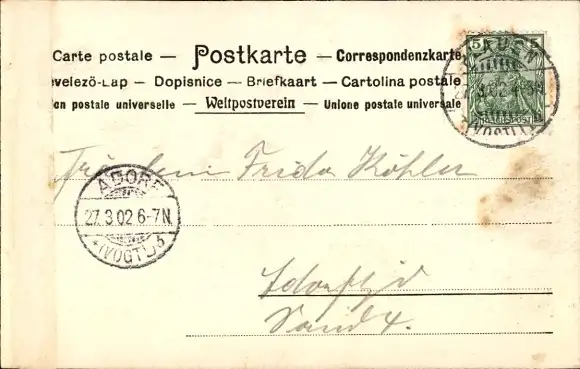 Carte postale — Postkarte — Correspondenzkarte
evelező-Lap — Dopisnice — Briefkaart — Cartolina postale
on postale universelle — Weltpostverein — Unione postale universale
5 5
REICHSPOST
AUEN
27 3 02
(VOGTL)
Fräulein Frida Köhler
ADORF
27.3.02 6-7N.
*(VOGTL) b
Adorf i/V